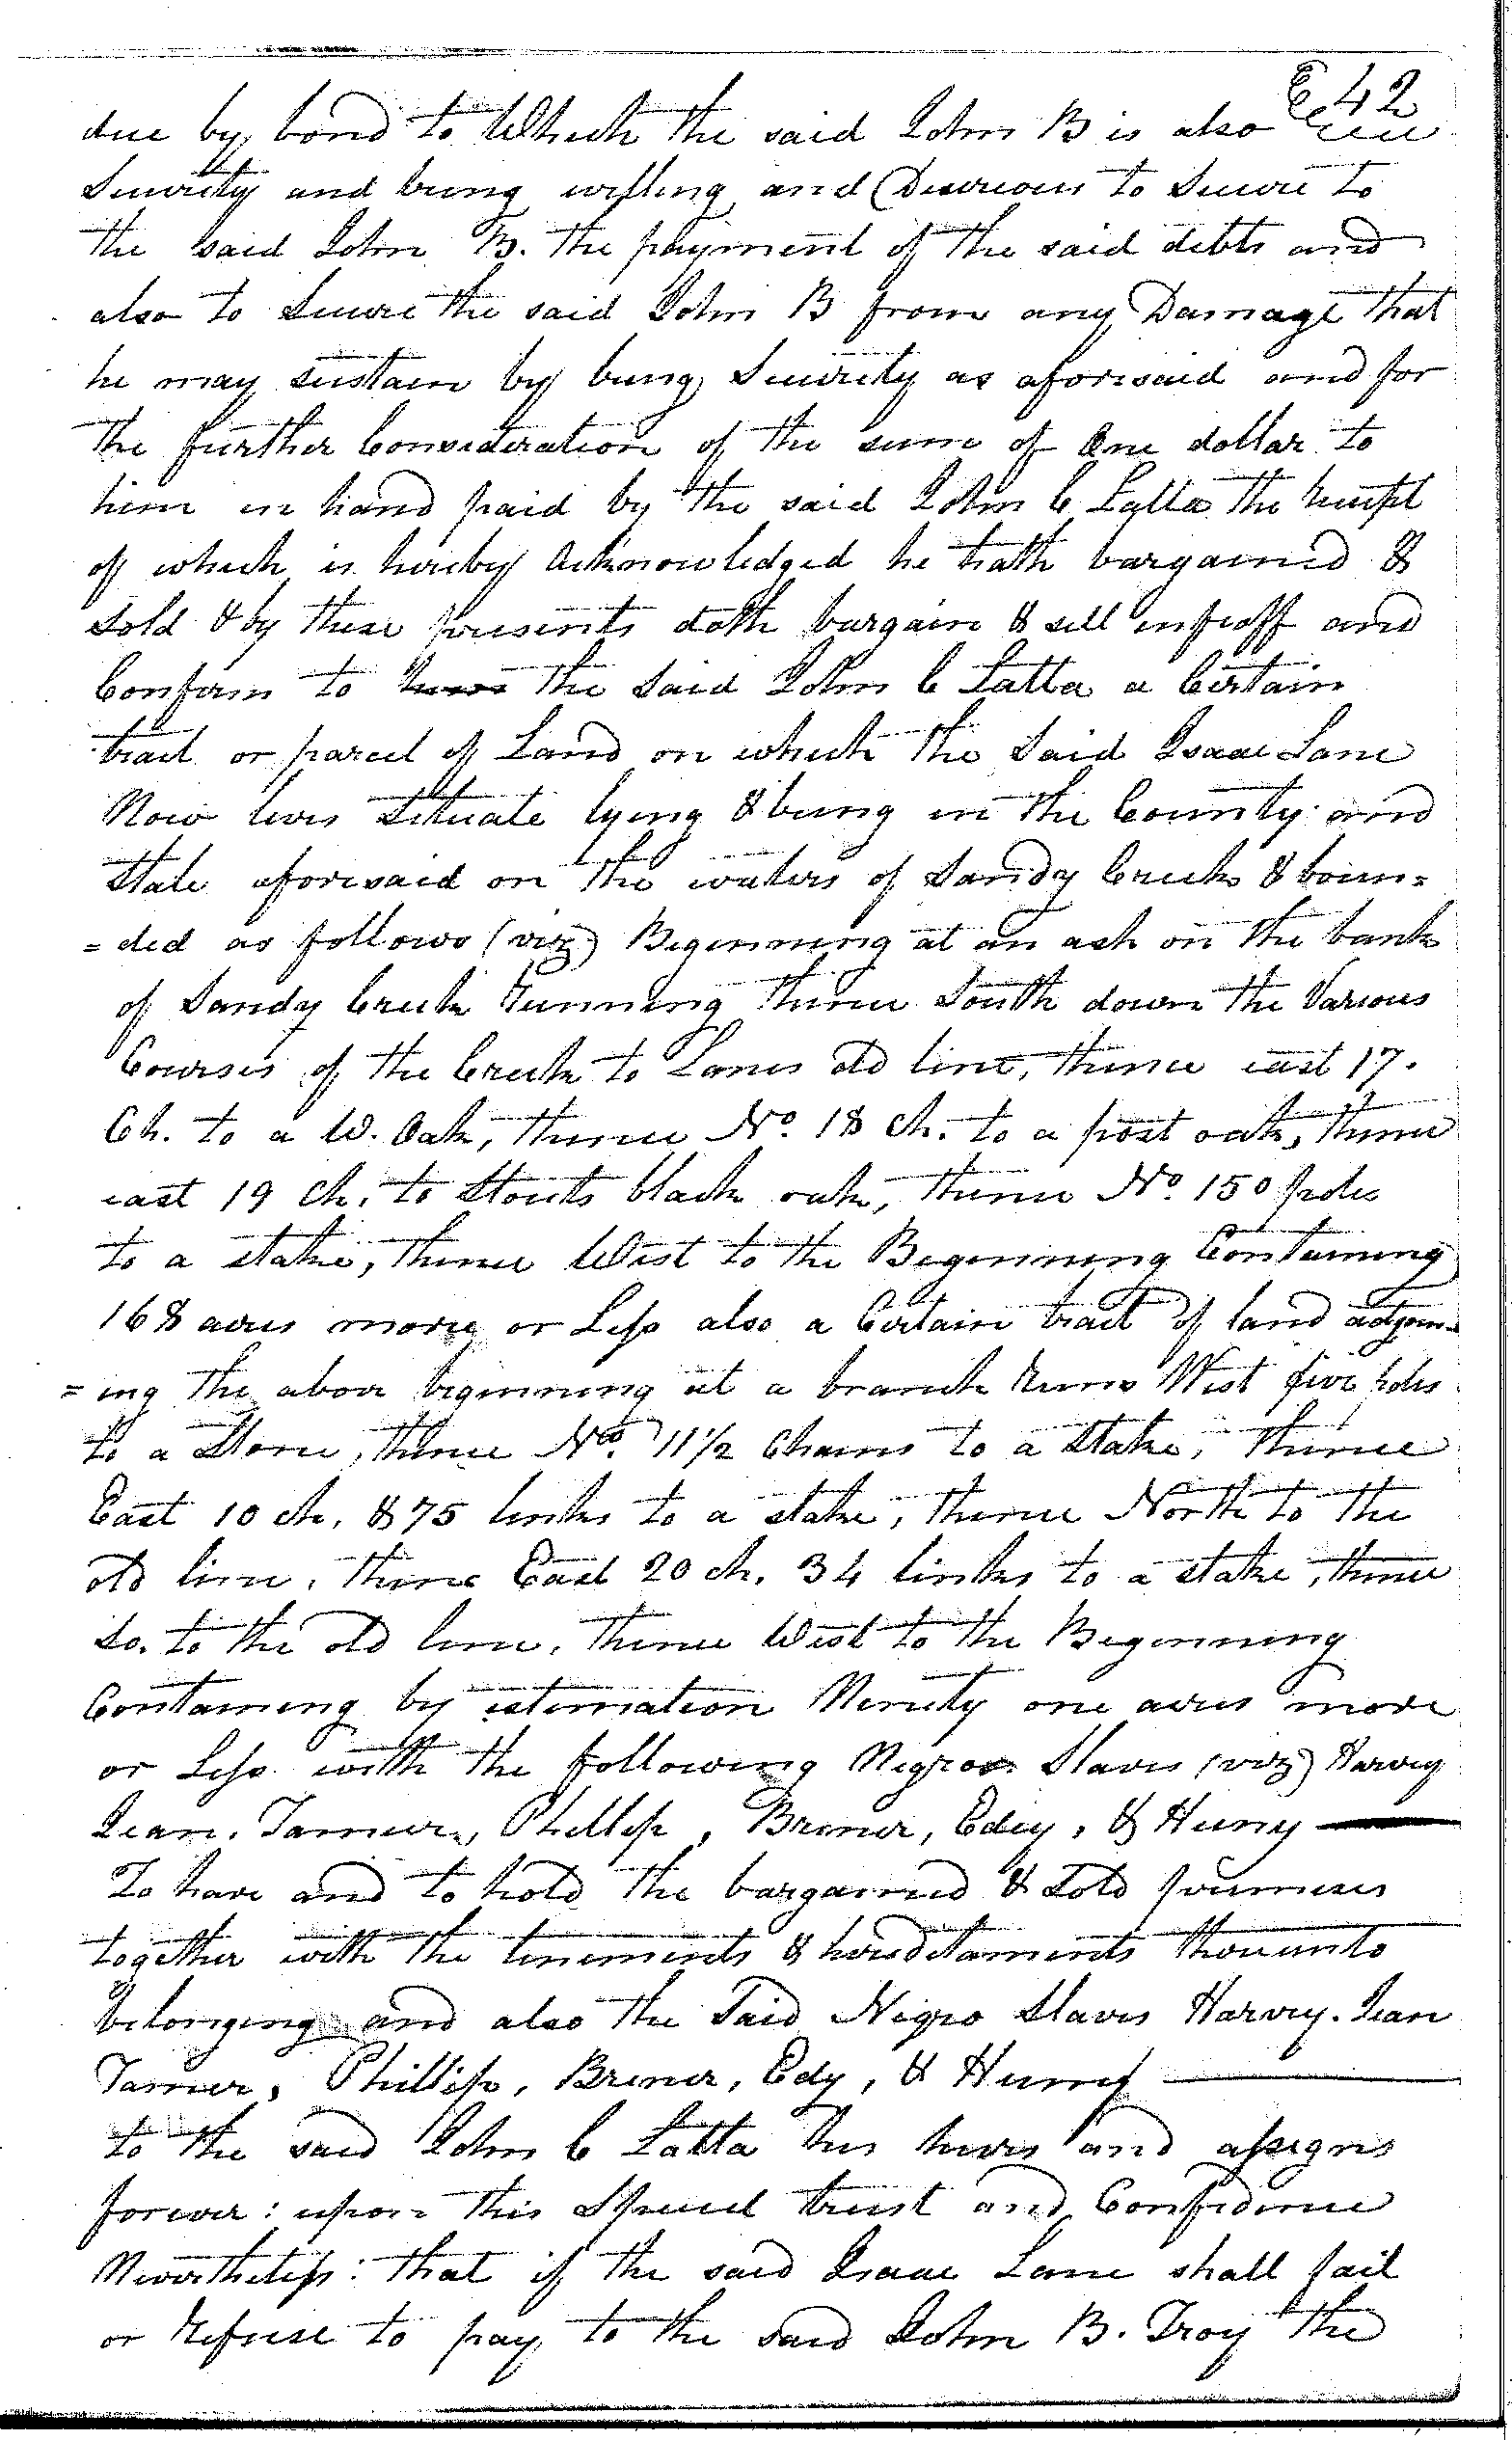 642
due by bond to Which the said John B is also
Security and being willing and Desireous to Secure to
the said John B. the payment of the said debts and
also to Secure the said John B from any Damage that
he may sustain by being Security as aforesaid and for
the further Consideration of the sum of One dollar to
him in hand paid by the said John C Latta the receipt
of which is hereby Acknowledged he hath bargained &
sold & by these presents doth bargain & sell infeoff and
Confirm to the said John C Latta a Certain
tract or parcel of Land on which the Said Isaac Lane
Now lives Situate lying & being in the County and
State aforesaid on the waters of Sandy Creek & boun=
=ded as follows (viz) Beginning at an ash on the bank
of Sandy Creek running thence South down the Various
Courses of the Creek to Lanes old line, thence east 17.
Ch. to a W. Oak, thence No. 18 ch. to a post oak, thence
east 19 ch. to Stouts black oak, thence No. 150 poles
to a stake, thence West to the Beginning Containing
168 acres more or Less also a Certain tract of land adjoin=
=ing the above beginning at a branch runs West five poles
to a Stone, thence No. 11½ Chains to a Stake, thence
East 10 ch. & 75 links to a stake, thence North to the
old line, thence East 20 ch. 34 links to a stake, thence
So. to the old line, thence West to the Beginning
Containing by estimation Ninety one acres more
or Less with the following Negroes Slaves (viz) Harvey
Jean, Tamer, Phillip, Brener, Edey, &
To have and to hold the bargained & Sold premises
together with the tenements & hereditaments thereunto
belonging and also the Said Negro Slaves Harvey. Jean
Tamer, Phillip, Brener, Edy, &
to the said John C Latta his heirs and assigns
forever: upon this Special trust and Confidence
Nevertheless: that if the said Isaac Lane shall fail
or refuse to pay to the said John B. Troy the